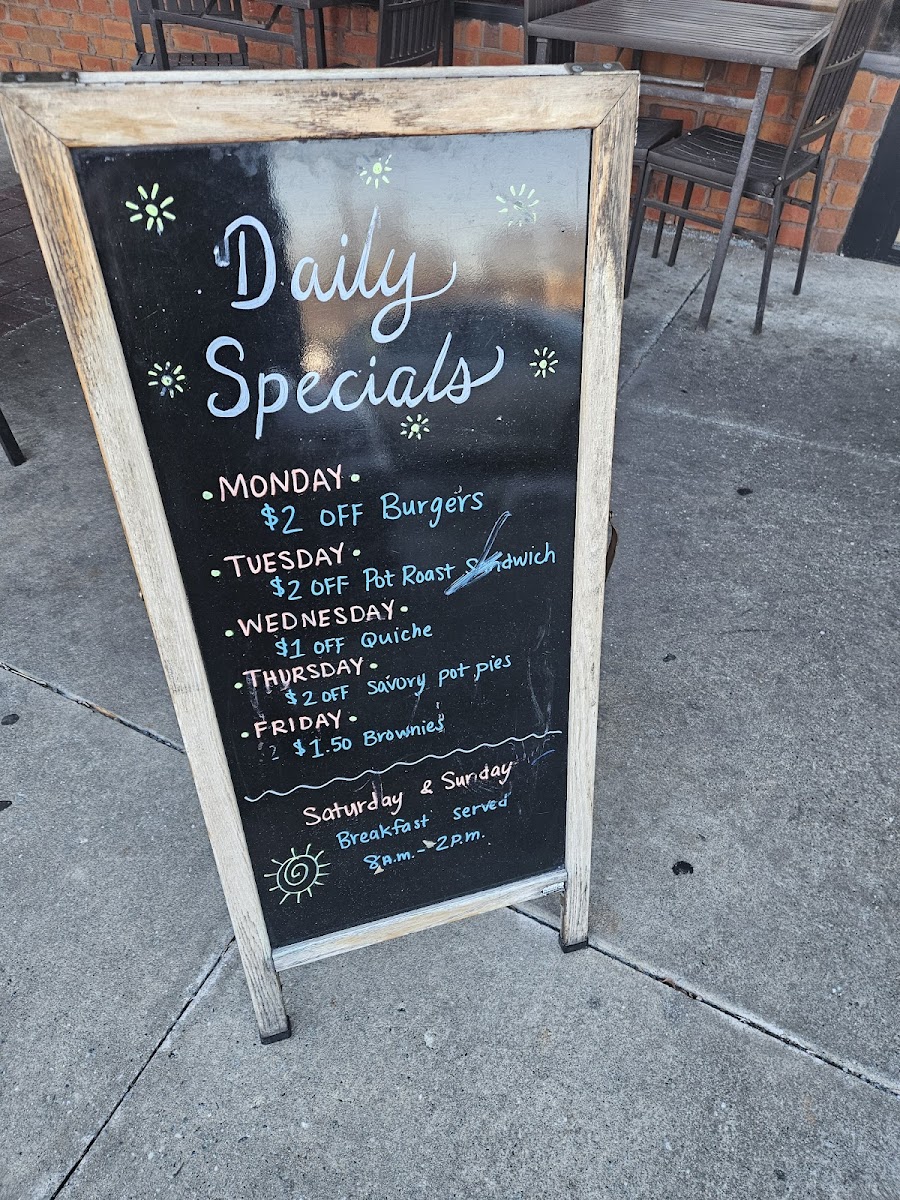 Daily
Specials
• MONDAY •
$2 OFF Burgers
• TUESDAY •
$2 OFF Pot Roast Sandwich
• WEDNESDAY •
$1 OFF Quiche
• THURSDAY •
$2 OFF savory pot pies
• FRIDAY •
$1.50 Brownies
Saturday & Sunday
Breakfast served
8A.m. - 2P.m.